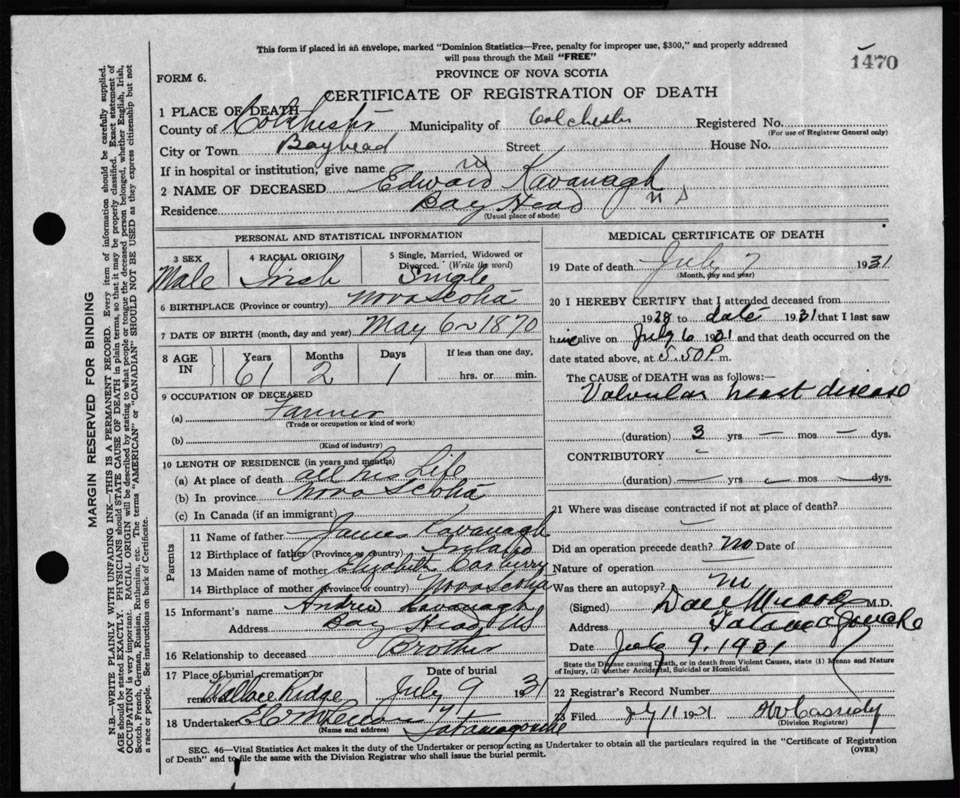 This form if placed in an envelope, marked "Dominion Statistics—Free, penalty for improper use, $300," and properly addressed
will pass through the Mail "FREE"
1470
FORM 6.
PROVINCE OF NOVA SCOTIA
CERTIFICATE OF REGISTRATION OF DEATH
1 PLACE OF DEATH
County of Colchester Municipality of Colchester Registered No.
(For use of Registrar General only)
City or Town Bayhead Street House No.
If in hospital or institution, give name
2 NAME OF DECEASED Edward Kavanagh
Residence Bay Head N S
(Usual place of abode)
PERSONAL AND STATISTICAL INFORMATION
3 SEX 4 RACIAL ORIGIN 5 Single, Married, Widowed or
Divorced. (Write the word)
Male Irish Single
6 BIRTHPLACE (Province or country) Nova Scotia
7 DATE OF BIRTH (month, day and year) May 6 1870
8 AGE IN Years Months Days If less than one day,
61 2 1 hrs. or min.
9 OCCUPATION OF DECEASED
(a) Farmer
(Trade or occupation or kind of work)
(b)
(Kind of industry)
10 LENGTH OF RESIDENCE (in years and months)
(a) At place of death all his Life
(b) In province Nova Scotia
(c) In Canada (if an immigrant)
Parents
11 Name of father James Kavanagh
12 Birthplace of father (Province or country) Ireland
13 Maiden name of mother Elizabeth
14 Birthplace of mother (Province or country) Nova Scotia
15 Informant's name Andrew Kavanagh
Address Bay Head NS
16 Relationship to deceased Brother
17 Place of burial, cremation or removal Date of burial
Wallace Ridge July 9 1931
18 Undertaker Tatamagouche
(Name and address)
MEDICAL CERTIFICATE OF DEATH
19 Date of death July 7 1931
(Month, day and year)
20 I HEREBY CERTIFY that I attended deceased from
1928 to date 1931 that I last saw
him alive on July 6 1931 and that death occurred on the
date stated above, at 5.50 P. m.
The CAUSE OF DEATH was as follows:—
Valvular heart disease
(duration) 3 yrs — mos — dys.
CONTRIBUTORY —
(duration) — yrs — mos — dys.
21 Where was disease contracted if not at place of death?
—
Did an operation precede death? no Date of
Nature of operation —
Was there an autopsy? no
(Signed) M.D.
Address Tatamagouche
Date July 9. 1931
State the Disease causing Death, or in death from Violent Causes, state (1) Means and Nature
of Injury, (2) whether Accidental, Suicidal or Homicidal.
22 Registrar's Record Number
23 Filed Jy 11 1931 Cassidy
(Division Registrar)
SEC. 46—Vital Statistics Act makes it the duty of the Undertaker or person acting as Undertaker to obtain all the particulars required in the "Certificate of Registration
of Death" and to file the same with the Division Registrar who shall issue the burial permit. (OVER)
MARGIN RESERVED FOR BINDING
N.B.—WRITE PLAINLY WITH UNFADING INK—THIS IS A PERMANENT RECORD. Every item of information should be carefully supplied.
AGE should be stated EXACTLY. PHYSICIANS should STATE CAUSE OF DEATH in plain terms, so that it may be properly classified. Exact statement of
OCCUPATION is very important. RACIAL ORIGIN will be described by stating to what people or tongue the deceased person belonged, whether English, Irish,
Scotch, French, German, Russian, Ruthenian, etc. The terms "AMERICAN" or "CANADIAN" SHOULD NOT BE USED as they express citizenship but not
a race or people. See instructions on back of Certificate.